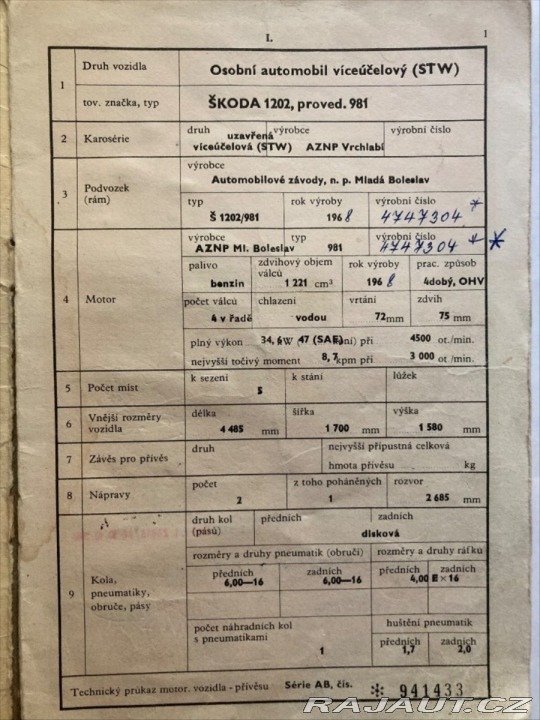 I. 1
1 Druh vozidla Osobní automobil víceúčelový (STW)
tov. značka, typ ŠKODA 1202, proved. 981
2 Karosérie druh uzavřená víceúčelová (STW) výrobce AZNP Vrchlabí výrobní číslo
3 Podvozek (rám) výrobce
Automobilové závody, n. p. Mladá Boleslav
typ rok výroby výrobní číslo
Š 1202/981 1968 4747304 *
4 Motor výrobce typ výrobní číslo
AZNP Ml. Boleslav 981 4747304 * *
palivo zdvihový objem válců rok výroby prac. způsob
benzin 1 221 cm³ 1968 4dobý, OHV
počet válců chlazení vrtání zdvih
4 v řadě vodou 72 mm 75 mm
plný výkon 34,6W (47 (SAE) ní) při 4500 ot./min.
nejvyšší točivý moment 8,7 kpm při 3 000 ot./min.
5 Počet míst k sezení k stání lůžek
5
6 Vnější rozměry vozidla délka šířka výška
4 485 mm 1 700 mm 1 580 mm
7 Závěs pro přívěs druh nejvyšší přípustná celková
hmota přívěsu kg
8 Nápravy počet z toho poháněných rozvor
2 1 2 685 mm
9 Kola, pneumatiky, obruče, pásy druh kol (pásů) předních zadních
disková
rozměry a druhy pneumatik (obručí) rozměry a druhy ráfků
předních zadních předních zadních
6,00—16 6,00—16 4,00 E × 16
počet náhradních kol s pneumatikami huštění pneumatik
předních zadních
1 1,7 2,0
Technický průkaz motor. vozidla - přívěsu Série AB, čís. * 941433
RAJAUT.CZ